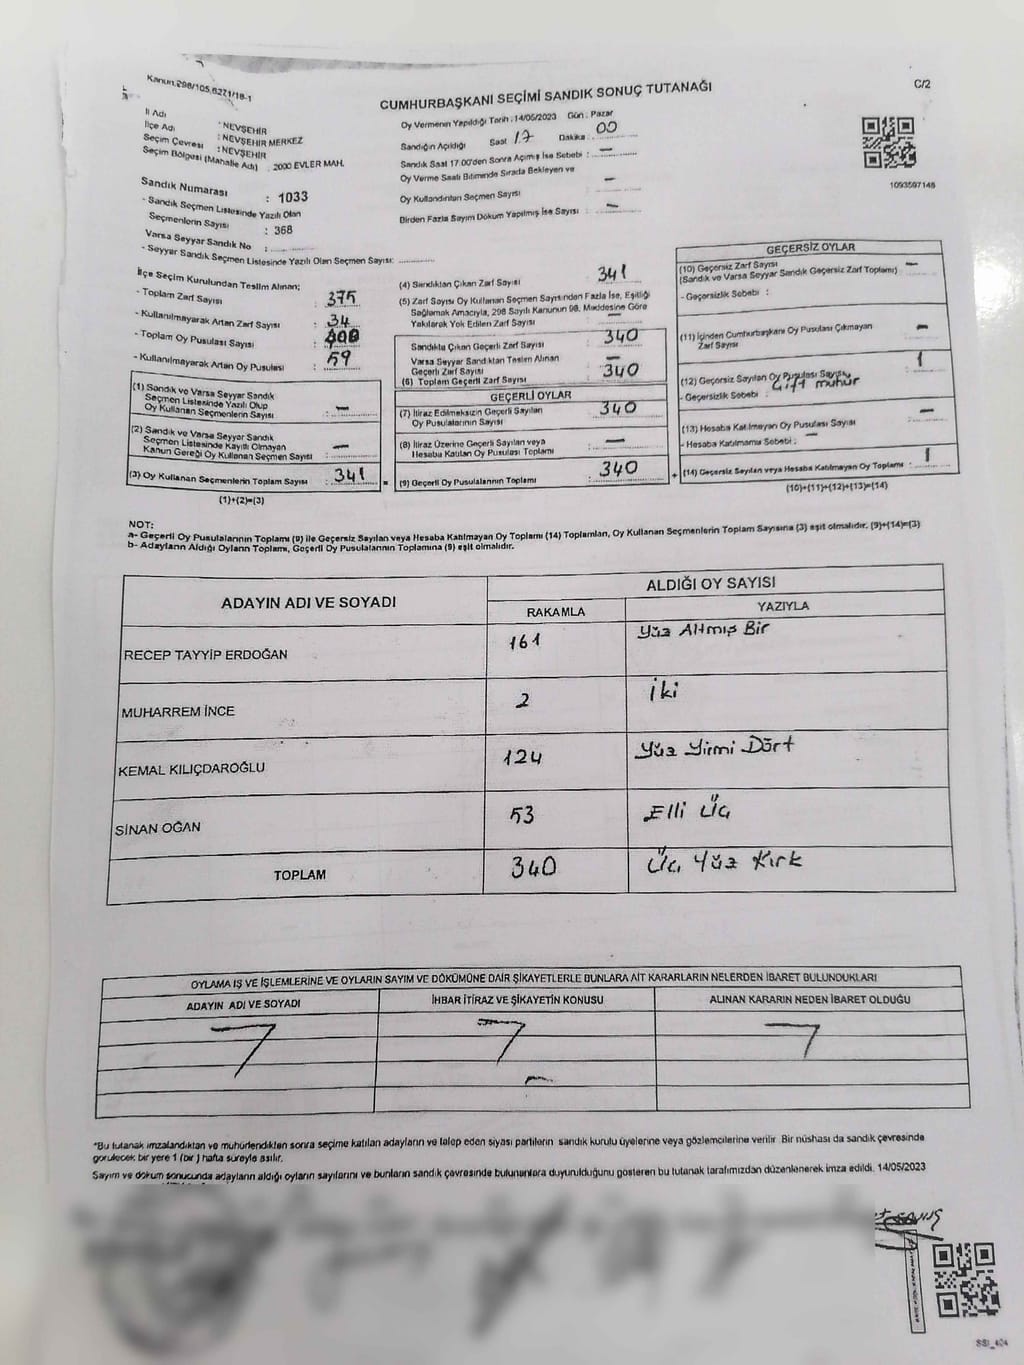 Kanun.298/105,6271/18-1
CUMHURBAŞKANI SEÇİMİ SANDIK SONUÇ TUTANAĞI
C/2
İl Adı : NEVŞEHİR
İlçe Adı : NEVŞEHİR MERKEZ
Seçim Çevresi : NEVŞEHİR
Seçim Bölgesi (Mahalle Adı) : 2000 EVLER MAH.
Oy Vermenin Yapıldığı Tarih : 14/05/2023 Gün : Pazar
Sandığın Açıldığı Saat 17 Dakika : 00
Sandık Saat 17:00'den Sonra Açımış İse Sebebi : —
Oy Verme Saati Bitiminde Sırada Bekleyen ve
Oy Kullandırılan Seçmen Sayısı : —
Birden Fazla Sayım Döküm Yapılmış İse Sayısı : —
1093597148
Sandık Numarası : 1033
- Sandık Seçmen Listesinde Yazılı Olan
Seçmenlerin Sayısı : 368
Varsa Seyyar Sandık No :
- Seyyar Sandık Seçmen Listesinde Yazılı Olan Seçmen Sayısı:
İlçe Seçim Kurulundan Teslim Alınan;
- Toplam Zarf Sayısı : 375
- Kullanılmayarak Artan Zarf Sayısı : 34
- Toplam Oy Pusulası Sayısı :
- Kullanılmayarak Artan Oy Pusulası : 59
(1) Sandık ve Varsa Seyyar Sandık
Seçmen Listesinde Yazılı Olup
Oy Kullanan Seçmenlerin Sayısı : —
(2) Sandık ve Varsa Seyyar Sandık
Seçmen Listesinde Kayıtlı Olmayan
Kanun Gereği Oy Kullanan Seçmen Sayısı : —
(3) Oy Kullanan Seçmenlerin Toplam Sayısı : 341
(1)+(2)=(3)
(4) Sandıktan Çıkan Zarf Sayısı : 341
(5) Zarf Sayısı Oy Kullanan Seçmen Sayısından Fazla İse, Eşitliği
Sağlamak Amacıyla, 298 Sayılı Kanunun 98. Maddesine Göre
Yakılarak Yok Edilen Zarf Sayısı : —
Sandıkta Çıkan Geçerli Zarf Sayısı : 340
Varsa Seyyar Sandıktan Teslim Alınan
Geçerli Zarf Sayısı : —
(6) Toplam Geçerli Zarf Sayısı : 340
GEÇERLİ OYLAR
(7) İtiraz Edilmeksizin Geçerli Sayılan
Oy Pusulalarının Sayısı : 340
(8) İtiraz Üzerine Geçerli Sayılan veya
Hesaba Katılan Oy Pusulası Toplamı : —
= (9) Geçerli Oy Pusulalarının Toplamı : 340
GEÇERSİZ OYLAR
(10) Geçersiz Zarf Sayısı : —
(Sandık ve Varsa Seyyar Sandık Geçersiz Zarf Toplamı)
- Geçersizlik Sebebi :
(11) İçinden Cumhurbaşkanı Oy Pusulası Çıkmayan
Zarf Sayısı : —
(12) Geçersiz Sayılan Oy Pusulası Sayısı : 1
- Geçersizlik Sebebi : Çift mühür
(13) Hesaba Katılmayan Oy Pusulası Sayısı : —
- Hesaba Katılmama Sebebi : —
+ (14) Geçersiz Sayılan veya Hesaba Katılmayan Oy Toplamı : 1
(10)+(11)+(12)+(13)=(14)
NOT:
a- Geçerli Oy Pusulalarının Toplamı (9) ile Geçersiz Sayılan veya Hesaba Katılmayan Oy Toplamı (14) Toplamları, Oy Kullanan Seçmenlerin Toplam Sayısına (3) eşit olmalıdır. (9)+(14)=(3)
b- Adayların Aldığı Oyların Toplamı, Geçerli Oy Pusulalarının Toplamına (9) eşit olmalıdır.
ADAYIN ADI VE SOYADI
ALDIĞI OY SAYISI
RAKAMLA YAZIYLA
RECEP TAYYİP ERDOĞAN 161 Yüz Altmış Bir
MUHARREM İNCE 2 İki
KEMAL KILIÇDAROĞLU 124 Yüz Yirmi Dört
SİNAN OĞAN 53 Elli Üç
TOPLAM 340 Üç Yüz Kırk
OYLAMA İŞ VE İŞLEMLERİNE VE OYLARIN SAYIM VE DÖKÜMÜNE DAİR ŞİKAYETLERLE BUNLARA AİT KARARLARIN NELERDEN İBARET BULUNDUKLARI
ADAYIN ADI VE SOYADI İHBAR İTİRAZ VE ŞİKAYETİN KONUSU ALINAN KARARIN NEDEN İBARET OLDUĞU
*Bu tutanak imzalandıktan ve mühürlendikten sonra seçime katılan adayların ve talep eden siyasi partilerin sandık kurulu üyelerine veya gözlemcilerine verilir. Bir nüshası da sandık çevresinde
görülecek bir yere 1 (bir ) hafta süreyle asılır.
Sayım ve döküm sonucunda adayların aldığı oyların sayılarını ve bunların sandık çevresinde bulunanlara duyurulduğunu gösteren bu tutanak tarafımızdan düzenlenerek imza edildi. 14/05/2023
SSI_404